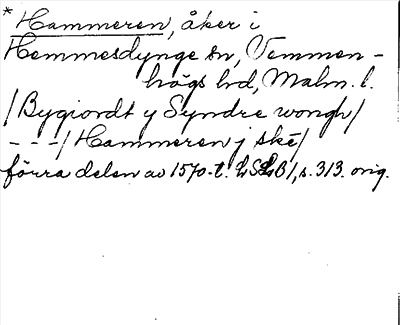 *Hammeren, åker i
Hemmesdynge sn, Vemmen-
högs hd, Malm. l.
/Bygiordt y Syndre wongh/
---/Hammeren j ske/
förra delen av 1570-t. LSLB1, s. 313. orig.